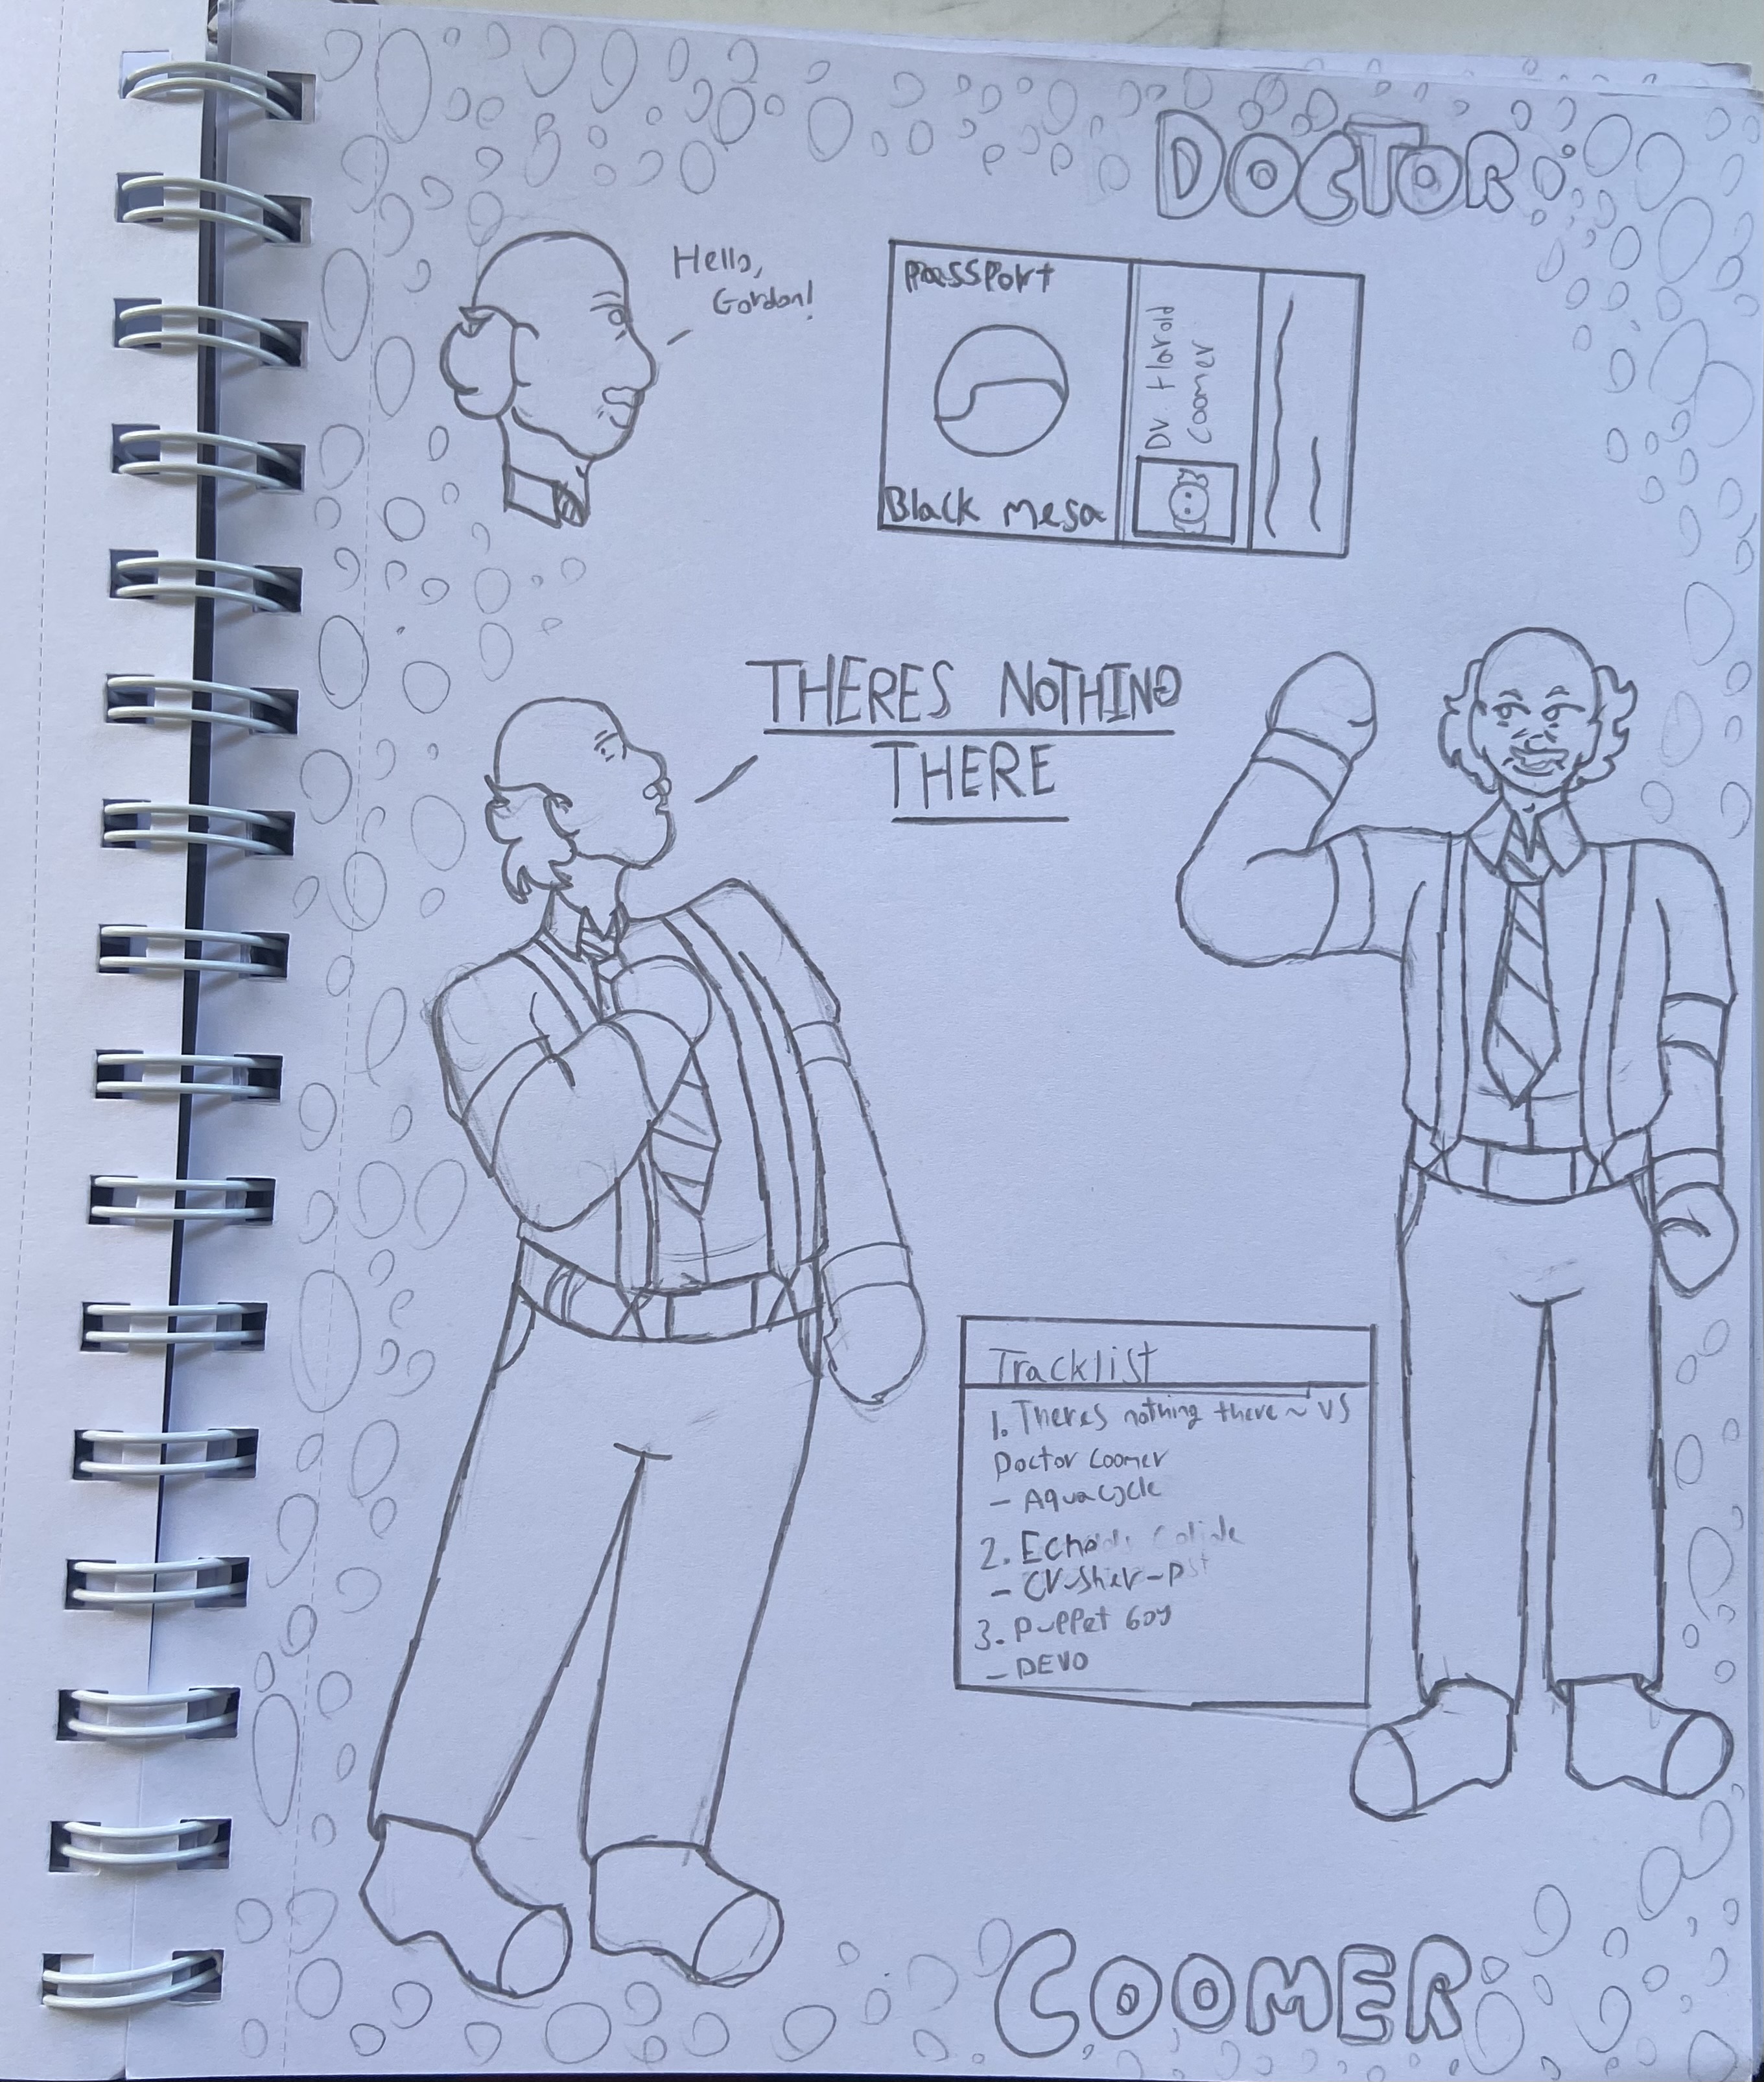 DOCTOR
Hello,
Gordon!
PASSPort
Dr. Harold
Coomer
Black mesa
THERES NOTHING
THERE
Tracklist
1. Theres nothing there ~ VS
Doctor Coomer
- Aquacycle
2. Echo
- Crusher-P
3. Puppet boy
- DEVO
COOMER